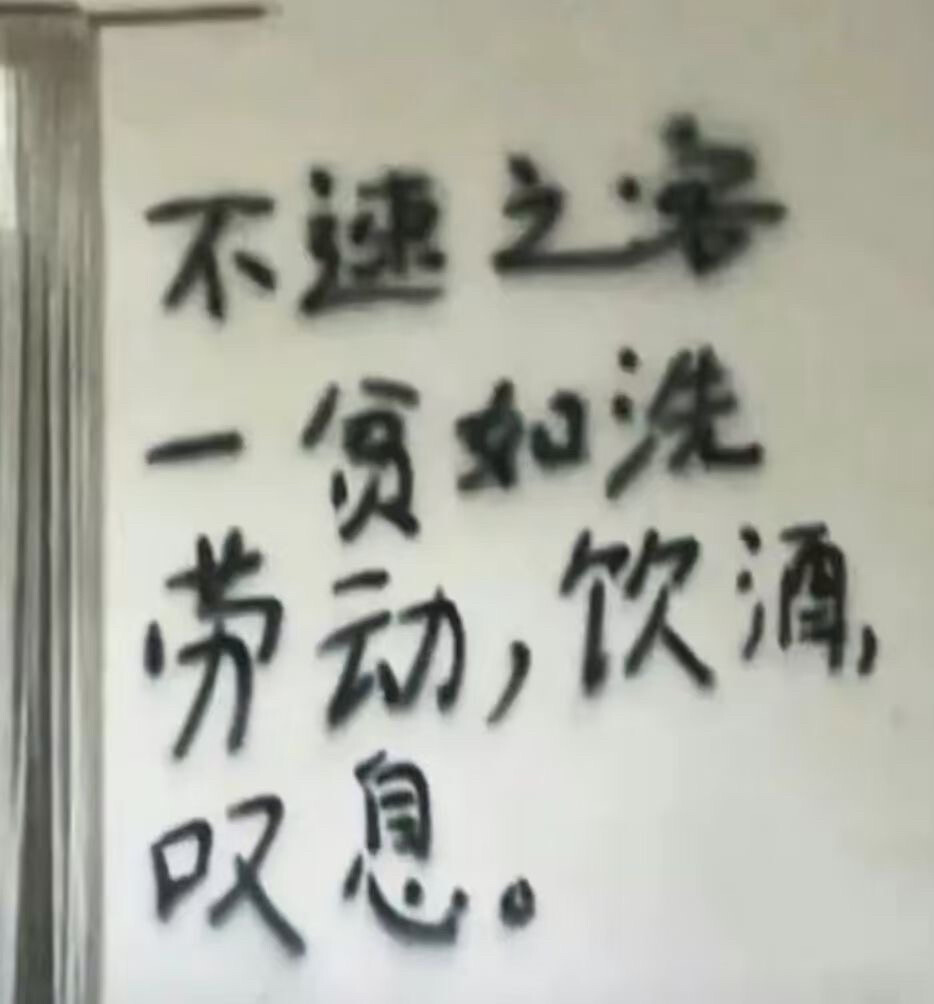 不速之客
一贫如洗
劳动,饮酒,
叹息。